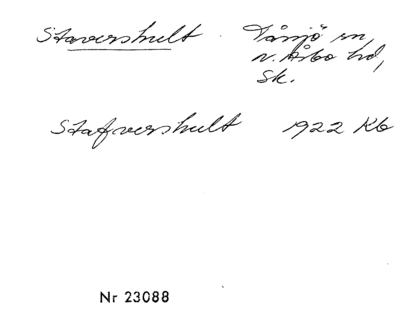 Stavershult Tåssjö sn,
N. Åsbo hd,
Sk.
Stafvershult 1922 Kb
Nr 23088